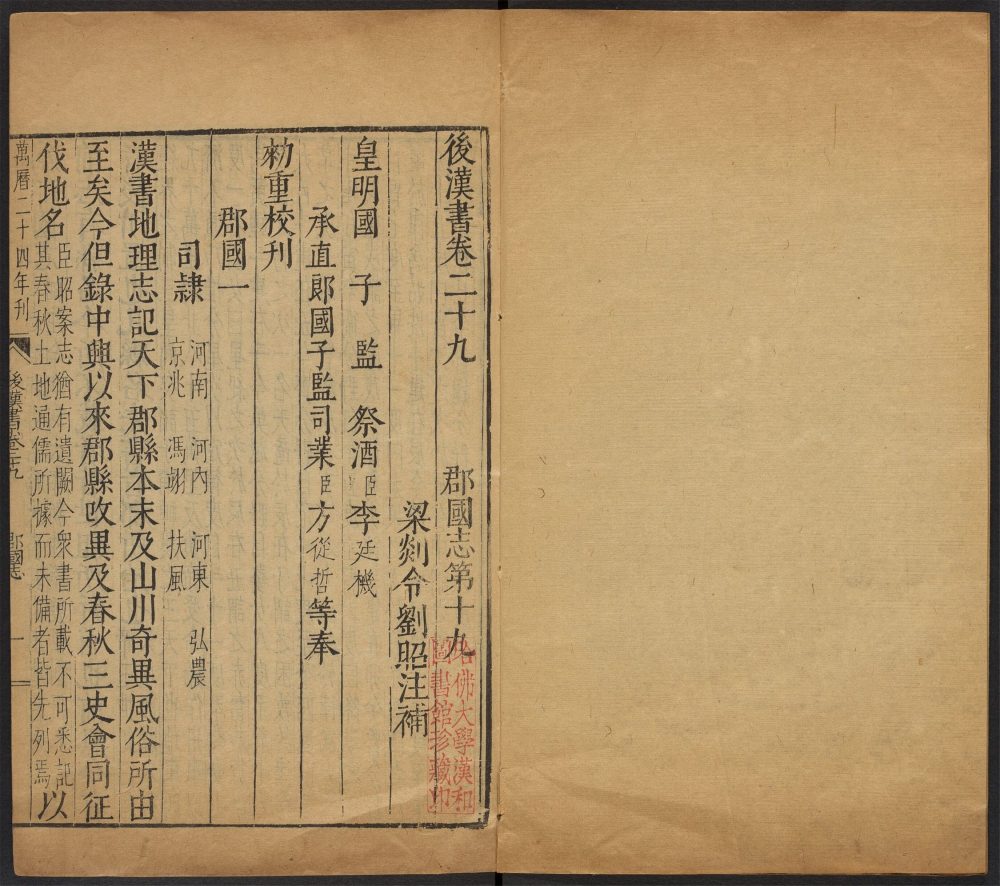 後漢書卷二十九　郡國志第十九
梁剡令劉昭注補
皇明國子監祭酒臣李廷機
承直郎國子監司業臣方從哲等奉
勑重校刊
郡國一
司隸　河南　河內　河東　弘農
京兆　馮翊　扶風
漢書地理志記天下郡縣本末及山川奇異風俗所由
至矣今但錄中興以來郡縣攺異及春秋三史會同征
伐地名臣昭案志猶有遺闕今衆書所載不可悉記
其春秋土地通儒所據而未備者皆先列焉以
萬曆二十四年刊　後漢書卷二十九　郡國志　一
哈佛大學漢和
圖書館珍藏印